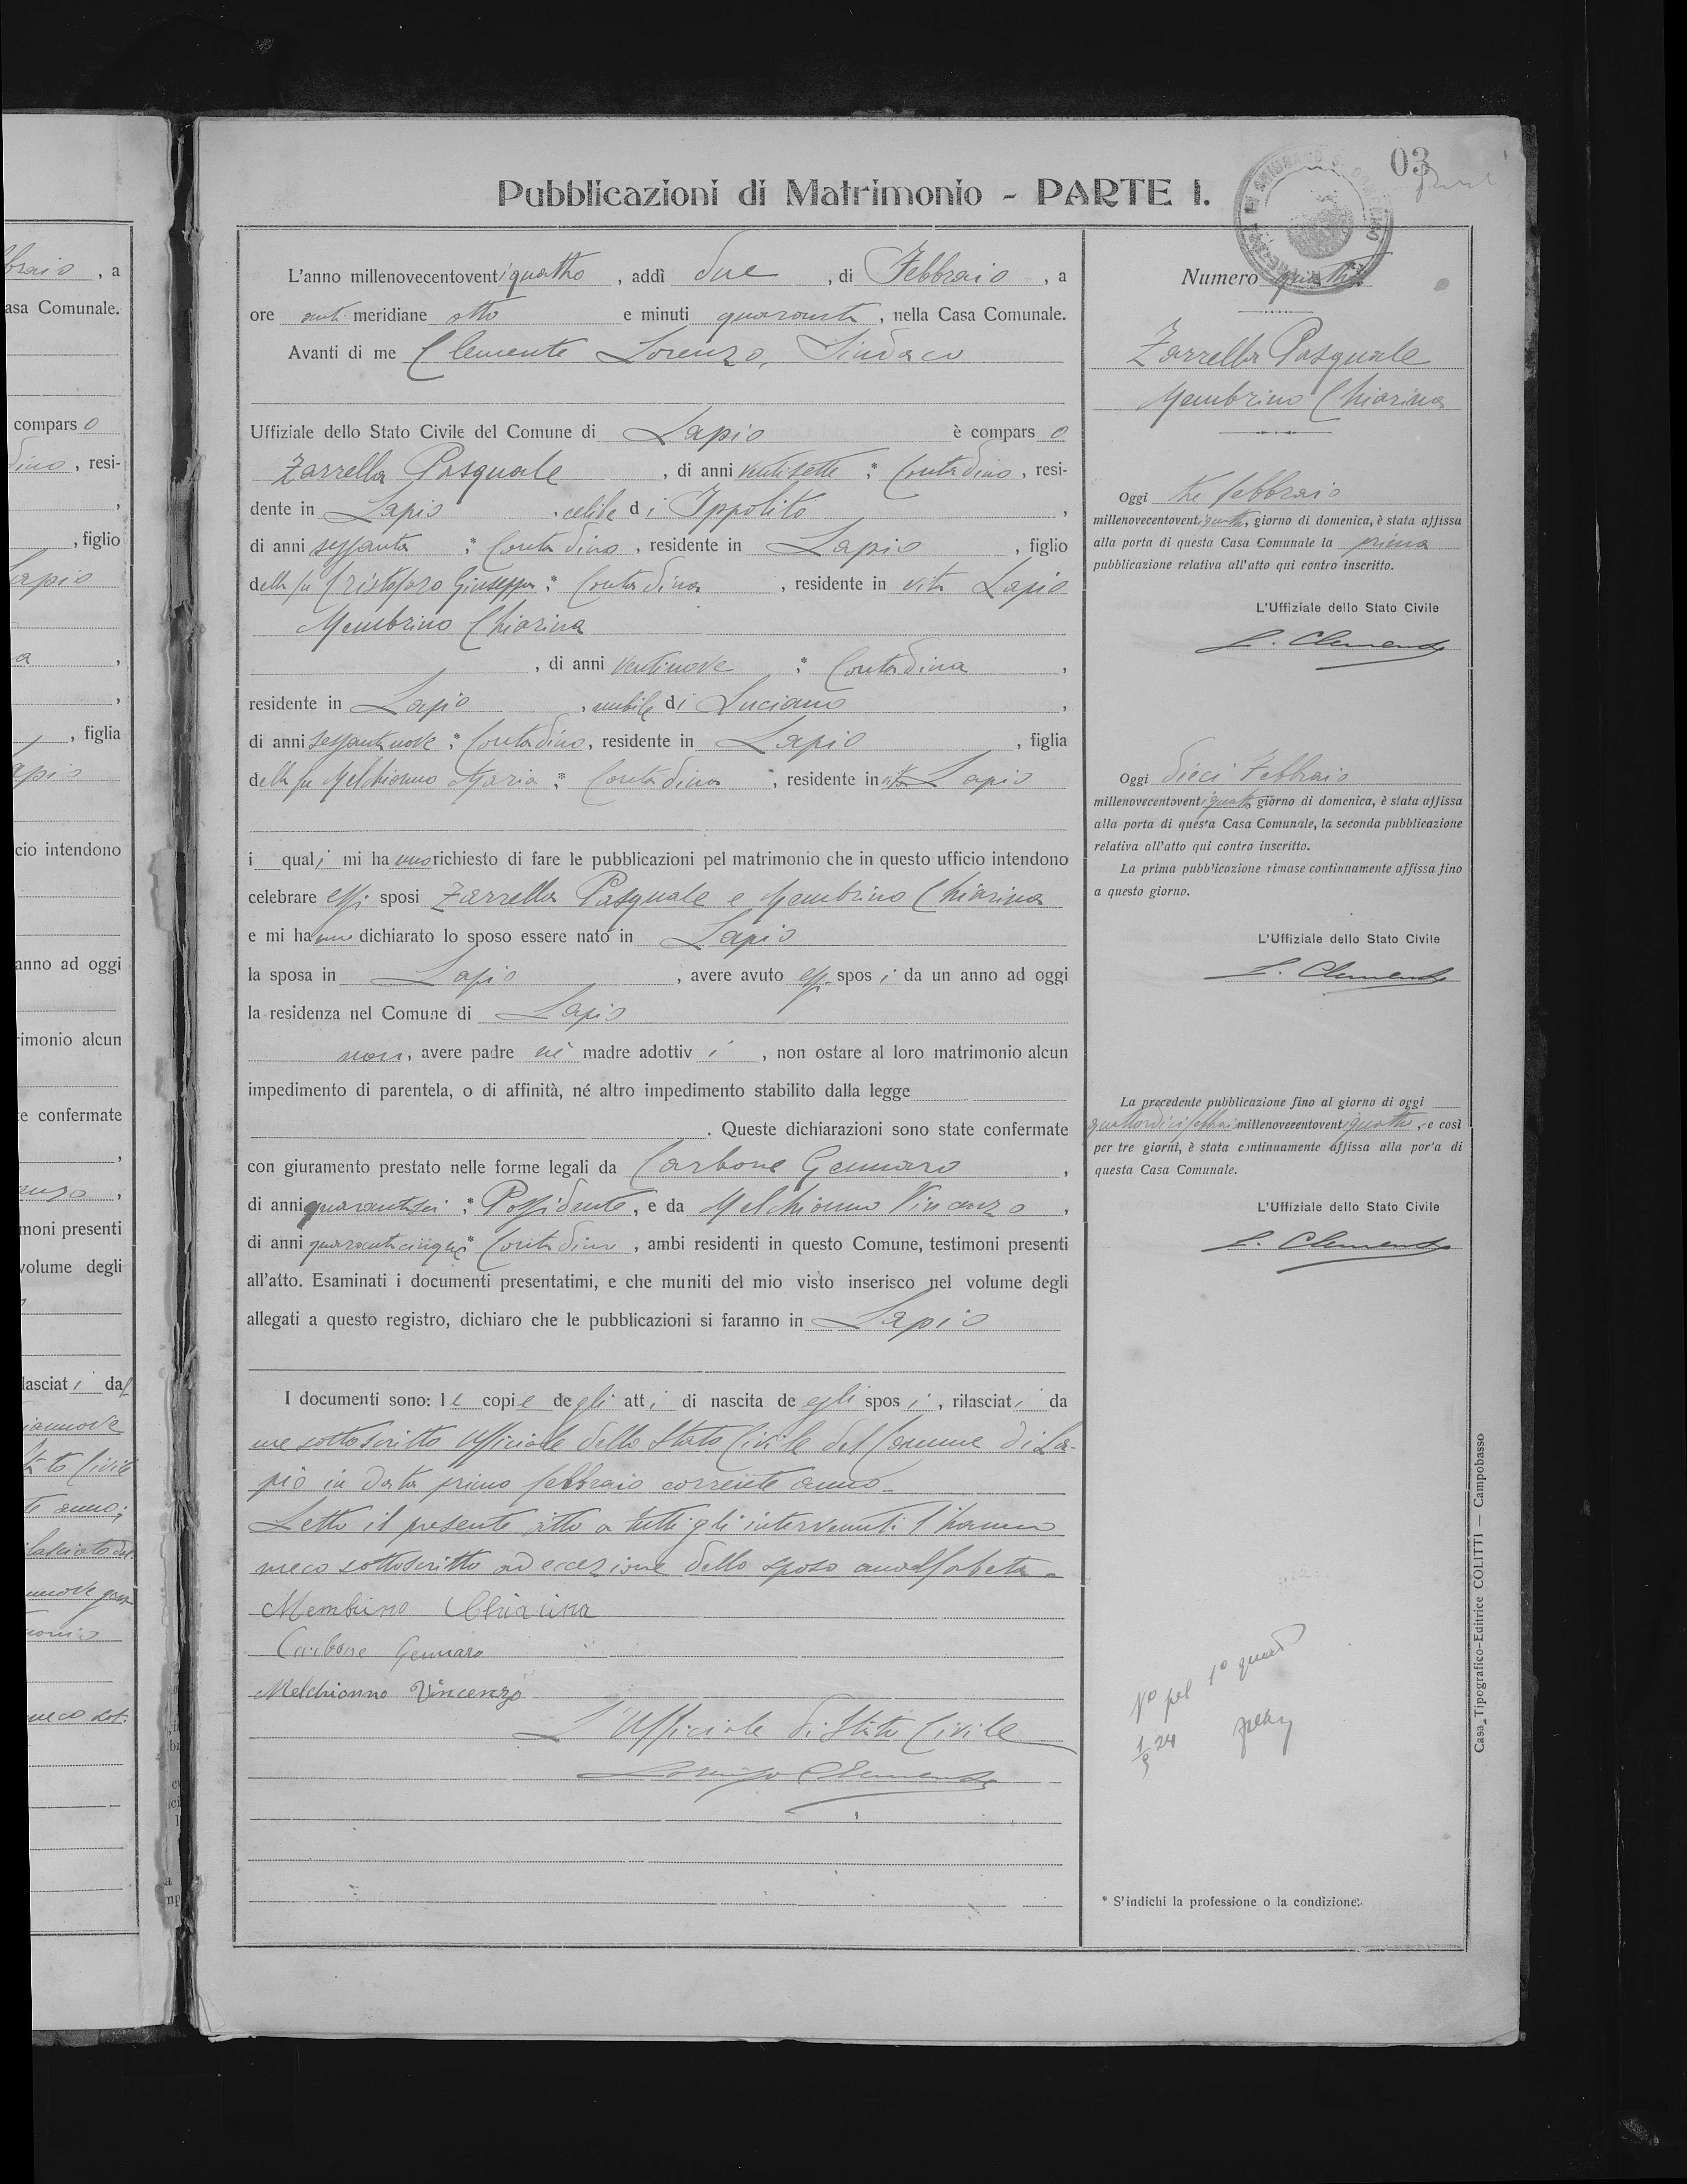 03
Pubblicazioni di Matrimonio - PARTE I.
L'anno millenovecentoventiquattro, addì due, di Febbraio, a
ore anti meridiane otto e minuti quaranta, nella Casa Comunale.
Avanti di me Clemente Lorenzo, Sindaco
Uffiziale dello Stato Civile del Comune di Lapio è comparso
Zarrella Pasquale, di anni ventisette * Contadino, resi-
dente in Lapio, celibe di Ippolito,
di anni sessanta * Contadino, residente in Lapio, figlio
della fu Cristofaro Giuseppa * Contadina, residente in vita Lapio
Membrino Chiarina
, di anni ventinove * Contadina,
residente in Lapio, nubile di Luciano,
di anni sessantanove * Contadino, residente in Lapio, figlia
della fu Melchionno Maria * Contadina, residente in vita Lapio
i quali mi hanno richiesto di fare le pubblicazioni pel matrimonio che in questo ufficio intendono
celebrare essi sposi Zarrella Pasquale e Membrino Chiarina
e mi hanno dichiarato lo sposo essere nato in Lapio
la sposa in Lapio, avere avuto essi sposi da un anno ad oggi
la residenza nel Comune di Lapio
non, avere padre nè madre adottivi, non ostare al loro matrimonio alcun
impedimento di parentela, o di affinità, né altro impedimento stabilito dalla legge
. Queste dichiarazioni sono state confermate
con giuramento prestato nelle forme legali da Carbone Gennaro,
di anni quarantasei * Possidente, e da Melchionno Vincenzo,
di anni quarantacinque * Contadino, ambi residenti in questo Comune, testimoni presenti
all'atto. Esaminati i documenti presentatimi, e che muniti del mio visto inserisco nel volume degli
allegati a questo registro, dichiaro che le pubblicazioni si faranno in Lapio
I documenti sono: le copie degli atti di nascita de egli sposi, rilasciati da
me sottoscritto Ufficiale dello Stato Civile del Comune di La-
pio in data primo febbraio corrente anno.
Letto il presente atto a tutti gli intervenuti l'hanno
meco sottoscritto ad eccezione dello sposo analfabeta.
Membrino Chiarina
Carbone Gennaro
Melchionno Vincenzo
L'Ufficiale di Stato Civile
Lorenzo Clemente
Numero quattro
Zarrella Pasquale
Membrino Chiarina
Oggi tre febbraio
millenovecentoventiquattro, giorno di domenica, è stata affissa
alla porta di questa Casa Comunale la prima
pubblicazione relativa all'atto qui contro inscritto.
L'Uffiziale dello Stato Civile
L. Clemente
Oggi dieci Febbraio
millenovecentoventiquattro giorno di domenica, è stata affissa
alla porta di questa Casa Comunale, la seconda pubblicazione
relativa all'atto qui contro inscritto.
La prima pubblicazione rimase continuamente affissa fino
a questo giorno.
L'Uffiziale dello Stato Civile
L. Clemente
La precedente pubblicazione fino al giorno di oggi
quattordici febbraio millenovecentoventiquattro, e così
per tre giorni, è stata continuamente affissa alla porta di
questa Casa Comunale.
L'Uffiziale dello Stato Civile
L. Clemente
* S'indichi la professione o la condizione.
Casa Tipografico-Editrice COLITTI — Campobasso
braio, a
asa Comunale.
compars o
dino, resi-
,
, figlio
apio
a,
,
, figlia
apio
cio intendono
anno ad oggi
rimonio alcun
te confermate
,
enzo,
moni presenti
volume degli
lasciati dal
annove
to Civile
te anno;
meco sot.